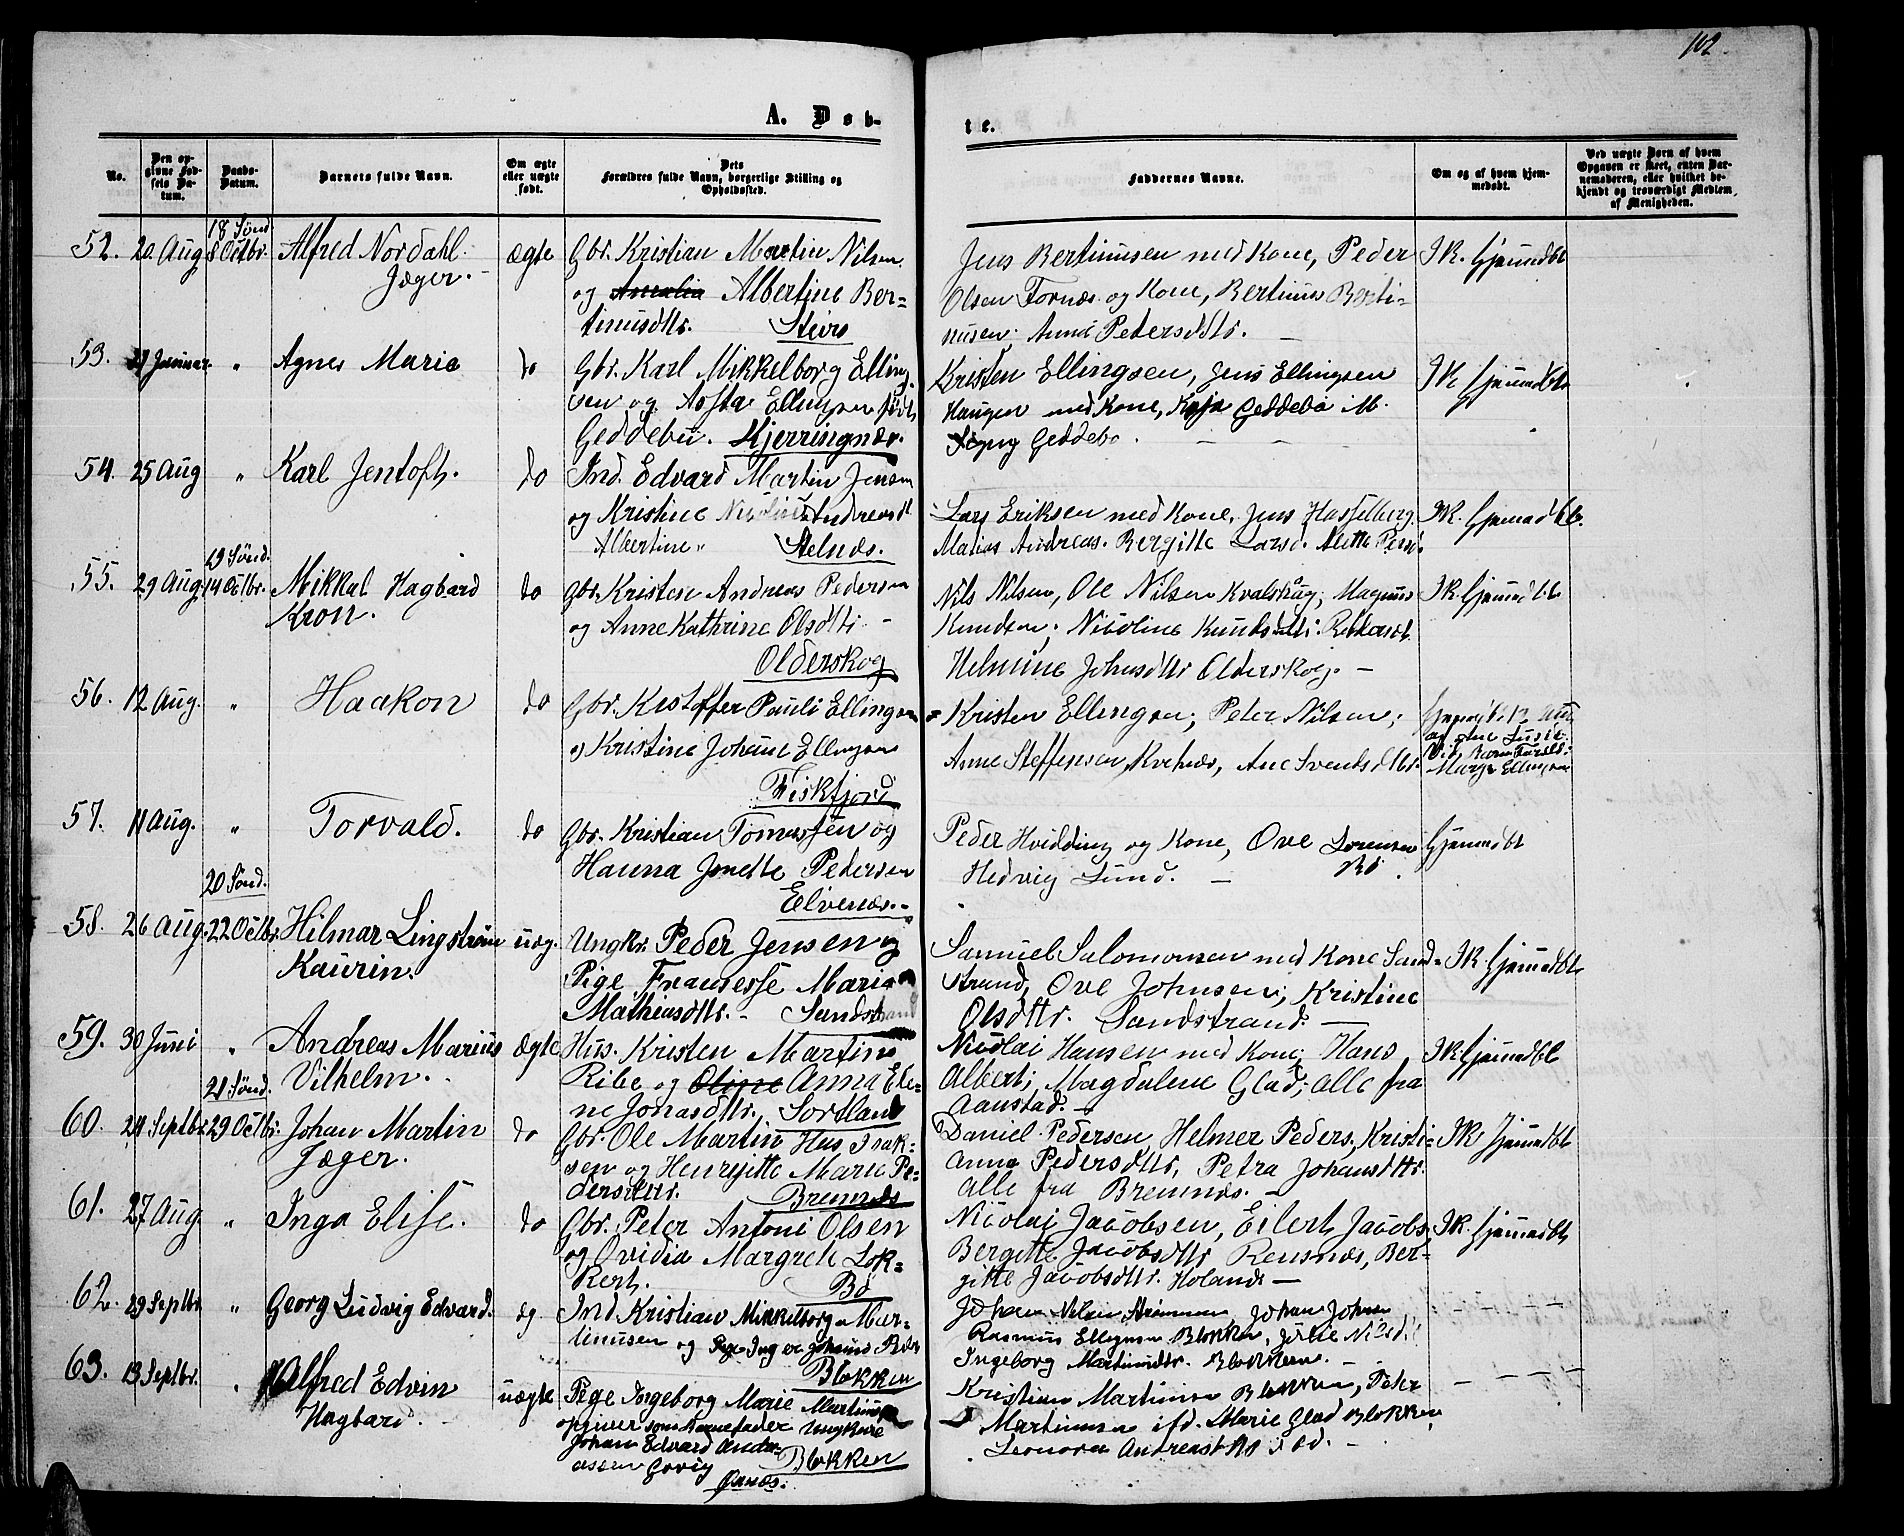 102
A. Døb-
te.
No.
Den opgivne Fødsels Datum.
Daabs-Datum.
Barnets fulde Navn.
Om ægte eller uægte født.
Dets Forældres fulde Navn, borgerlige Stilling og Opholdssted.
Faddernes Navne.
Om og af hvem hjemmedøbt.
Ved uægte Børn af hvem Opgaven er skeet, enten Barnemoderen, eller hvilket bekjendt og troværdigt Medlem af Menigheden.
18 Sønd
52. 20 Aug 8 Octbr. Alfred Nordahl Jæger. ægte
Gbr. Kristian Martin Nilsen
og Albertine Ber-
tinusdtr. Stivs
Jens Bertinusen med Kone, Peder
Olsen Fornæs og Kone, Bertinus Berti-
nusen, Anne Petersdtr.
IK. Hjemmedbt
53. Januar. " Agnes Marie do
Gbr. Karl Mikkelborg Elling
sen og Ellingsen født
Geddebu. Kjerringnæs.
Kristen Ellingsen, Jens Ellingsen
Haugen med Kone, Kaja Geddebo
Signy Geddebo.
IK Hjemmedbt
54. 25 Aug " Karl Jentoft. do
Ind. Edvard Martin Jensen
og Kristine Andreasdt
Albertine " Stelnæs.
Lars Eriksen med Kone, Jens Hasselberg
Matias Andreas. Bergitte Larsd.
IK. Hjemmedbt.
19 Sønd.
55. 29 Aug. 14 Octbr. Mikkal Hagbard Kron. do
Gbr. Kristen Andreas Pedersen
og Anne Kathrine Olsdtr.
Olderskog
Nils Nilsen, Ole Nilsen Kvalskog, Magnus
Knudsen, Nicoline Knudsdtr.
Helmine Johnsdtr Olderskog.
IK. Hjemmedbt
56. 12 Aug. " Haakon do
Gbr. Kristoffer Pauli Ellingsen
og Kristine Johane Ellingsen
Fiskfjord
Kristen Ellingsen, Peter Nilsen,
Anne Steffensen, Kvæhnæs, Ane Svendsdtr.
Marja Ellingsen
57. 11 Aug. " Torvald. do
Gbr. Kristian Tomassen og
Hanna Jonette Pedersen
Elvenæs.
Peder Hvidding og Kone, Ove Sorensen Bø
Hedvig Lund.
Hjemmedbt
20 Sønd.
58. 26 Aug. 22 Octbr. Hilmar Lingstrøm Kaurin. uæg.
Ungkr. Peder Jensen og
Pige Fransesse Maria
Mathiasdtr. Sandstrand
Samuel Salomonsen med Kone Sand-
strand, Ove Johnsen, Kristine
Olsdtr. Sandstrand.
IK. Hjemmedbt
59. 30 Juni " Andreas Marius Vilhelm. ægte
Hus. Kristen Martin
Ribe og Oline Anna Ele-
ne Jonasdtr. Sortland
Nicolai Hansen med Kone, Hans
Albert, Magdalene Glad, alle fra
Aanstad.
IK Hjemmedbt
21 Sønd.
60. 24 Septbr. 29 Octbr. Johan Martin Jæger. do
Gbr. Ole Martin Hus. Isak-
sen og Henrijtte Marie Pe-
dersdtr. Bremnæs
Daniel Pedersen, Helmer Peders, Kristi-
anna Pedersdtr, Petra Johansdtr.
alle fra Bremnæs.
IK Hjemmedbt
61. 27 Aug " Inga Elise. do
Gbr. Peter Antoni Olsen
og Ovidia Margrete Lok-
kert. Bø
Nicolai Jacobsen, Eilert Jacobs
Bergitte Jacobsdtr Rensnæs, Ber-
gitte Jacobsdtr. Holand
IK. Hjemmedbt
62. 29 Septbr. " Georg Ludvig Edvard. æg
Ind. Kristian Mikkelborg Mar-
tinusen og
Blokken
Johan Nilsen Johan Johnsen
Rasmus Ellingsen Blokken, Julie Nilsd.
Ingeborg Martinusdtr. Blokken.
63. 13 Septbr. " Alfred Edvin Hagbard. uægte
Pige Ingeborg Marie Martinus
opgiver som Barnefader Ungkarl
Johan Edvard Andre-
assen Blokken
Kristian Martinusen Blokken, Peter
Martinusen ifd. Marie Glad Blokken
Leonora